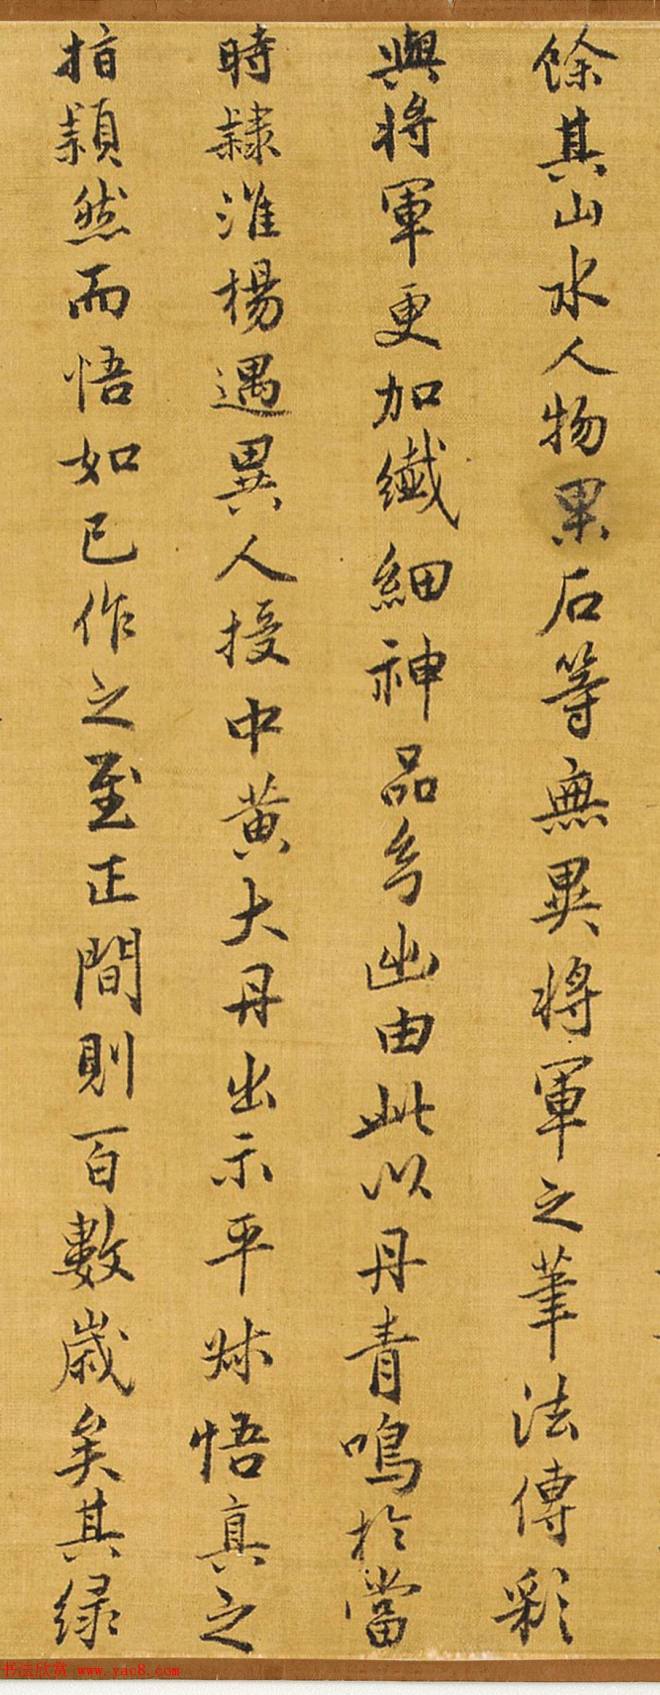 餘其山水人物果石等無異將軍之筆法傳彩
與將軍更加纖細神品兮出由此以丹青鳴於當
時隸淮楊遇異人授中黃大丹出示平叔悟真之
指穎然而悟如已作之至正間則百數歲矣其綠
书法欣赏 www.yac8.com